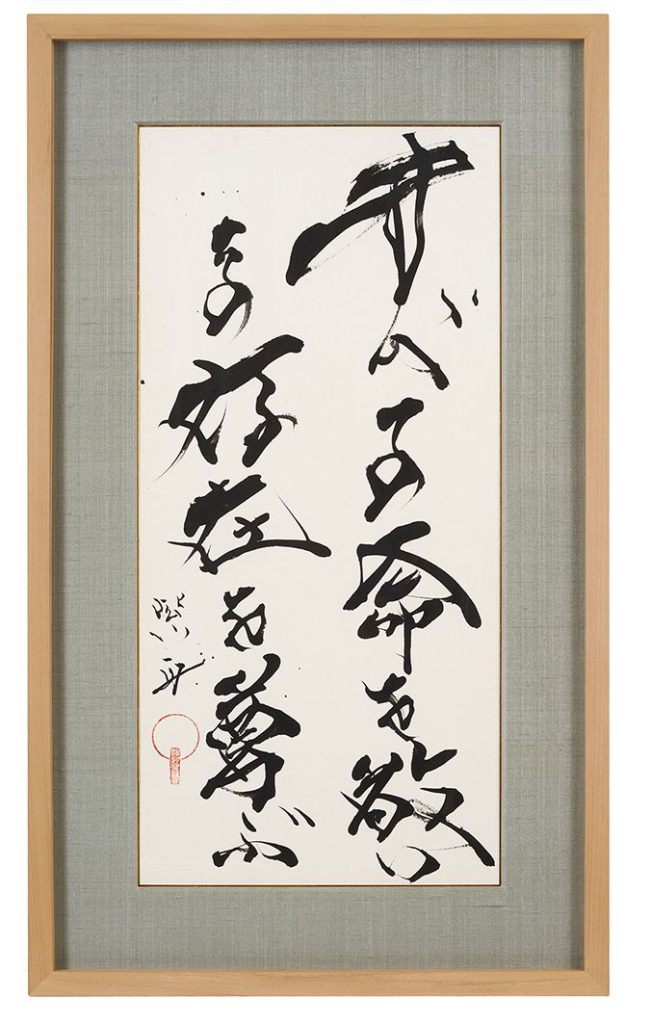 すべての命を敬い
その存在を尊ぶ